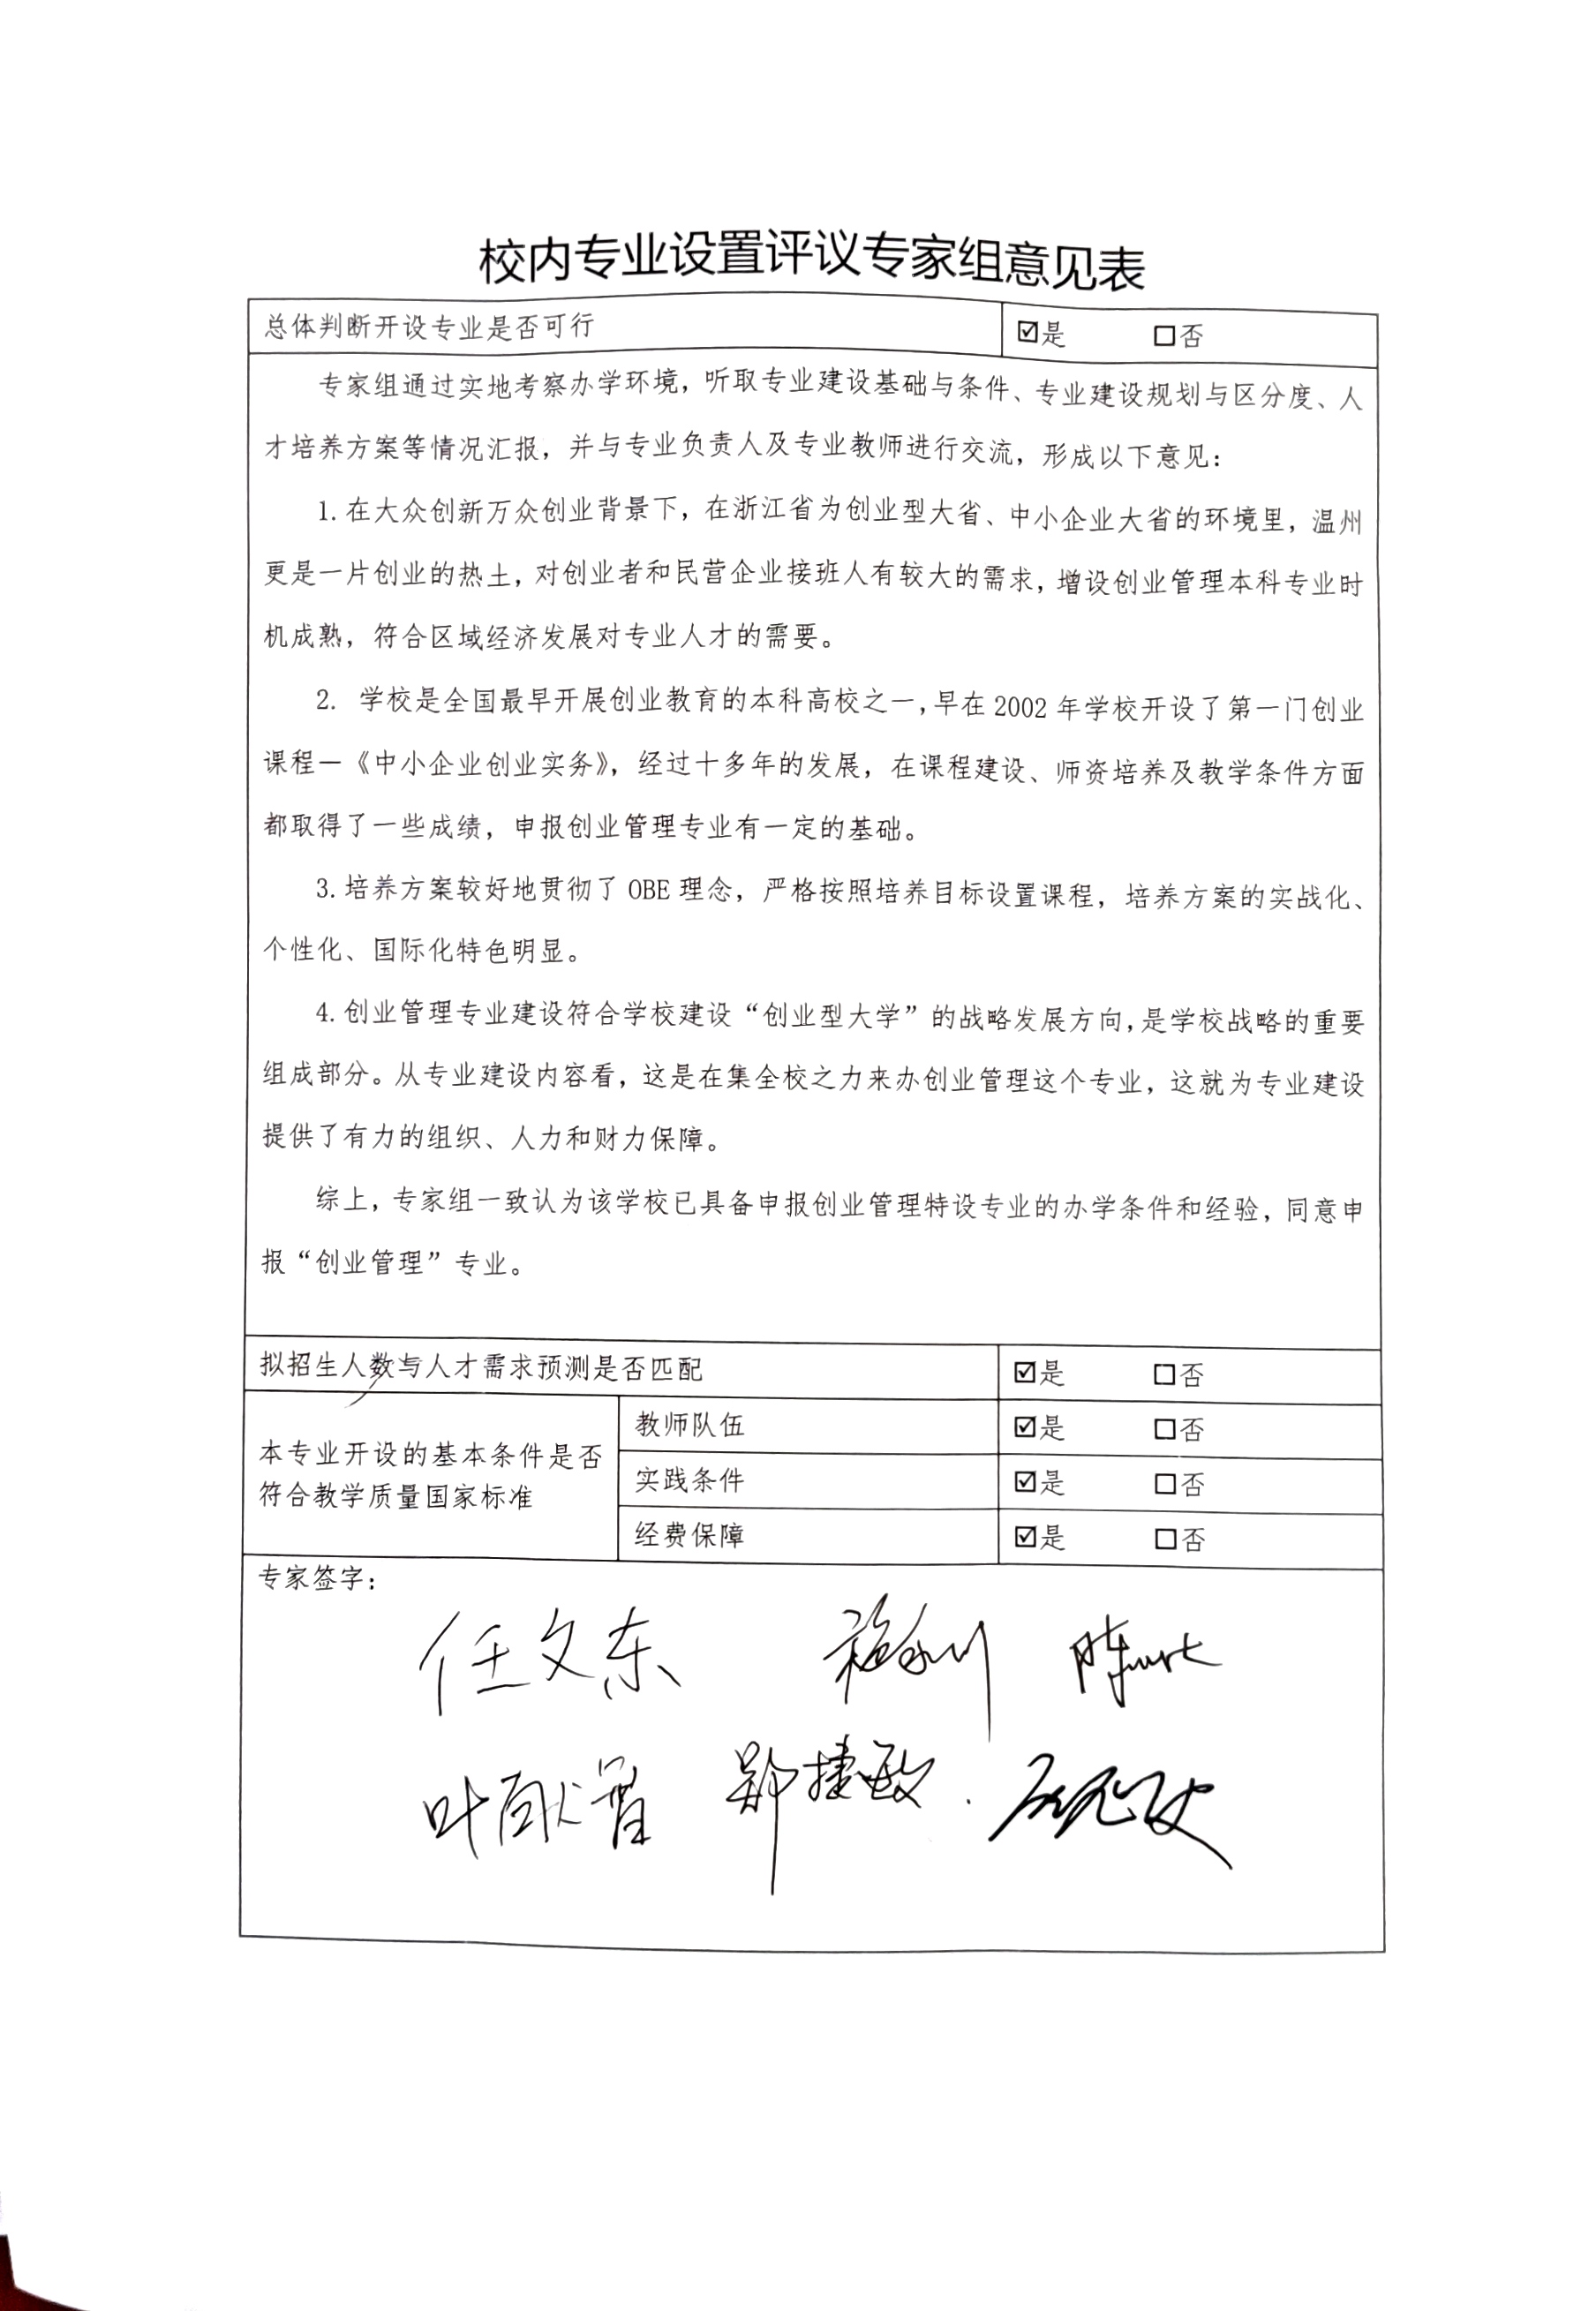 校内专业设置评议专家组意见表
总体判断开设专业是否可行 ☑是 □否
专家组通过实地考察办学环境，听取专业建设基础与条件、专业建设规划与区分度、人
才培养方案等情况汇报，并与专业负责人及专业教师进行交流，形成以下意见：
1.在大众创新万众创业背景下，在浙江省为创业型大省、中小企业大省的环境里，温州
更是一片创业的热土，对创业者和民营企业接班人有较大的需求，增设创业管理本科专业时
机成熟，符合区域经济发展对专业人才的需要。
2. 学校是全国最早开展创业教育的本科高校之一，早在 2002 年学校开设了第一门创业
课程—《中小企业创业实务》，经过十多年的发展，在课程建设、师资培养及教学条件方面
都取得了一些成绩，申报创业管理专业有一定的基础。
3.培养方案较好地贯彻了 OBE 理念，严格按照培养目标设置课程，培养方案的实战化、
个性化、国际化特色明显。
4.创业管理专业建设符合学校建设“创业型大学”的战略发展方向，是学校战略的重要
组成部分。从专业建设内容看，这是在集全校之力来办创业管理这个专业，这就为专业建设
提供了有力的组织、人力和财力保障。
综上，专家组一致认为该学校已具备申报创业管理特设专业的办学条件和经验，同意申
报“创业管理”专业。
拟招生人数与人才需求预测是否匹配 ☑是 □否
本专业开设的基本条件是否
符合教学质量国家标准
教师队伍 ☑是 □否
实践条件 ☑是 □否
经费保障 ☑是 □否
专家签字：
任文东
郑捷敏